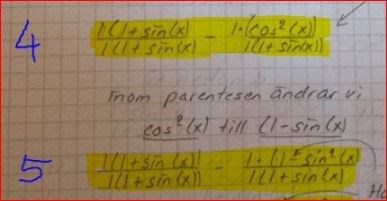 4 1(1+sin(x) / 1(1+sin(x) - 1·(cos²(x)) / 1(1+sin(x))
Inom parentesen ändrar vi
cos²(x) till (1-sin(x)
5 1(1+sin(x)) / 1(1+sin(x)) - 1·(1-sin²(x) / 1(1+sin(x)